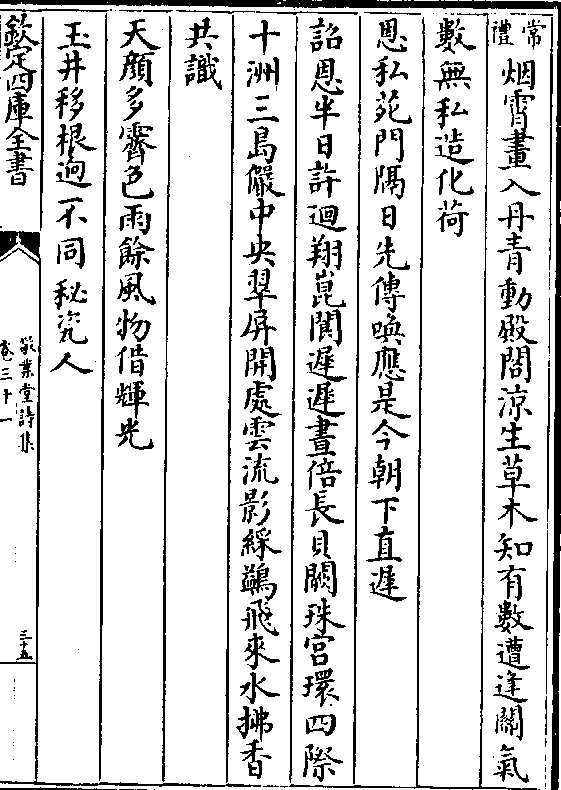 常禮烟霄畫入丹青動殿閣涼生草木知有數遭逢關氣
數無私造化荷
恩私苑門隔日先傳喚應是今朝下直遲
詔恩半日許迴翔崑閬遲遲晝倍長貝闕珠宫環四際
十洲三島儼中央翠屏開處雲流影綵鷁飛來水拂香
共識
天顔多霽色雨餘風物借輝光
玉井移根迥不同秘瓷人
欽定四庫全書
敬業堂詩集
卷三十一
三十五